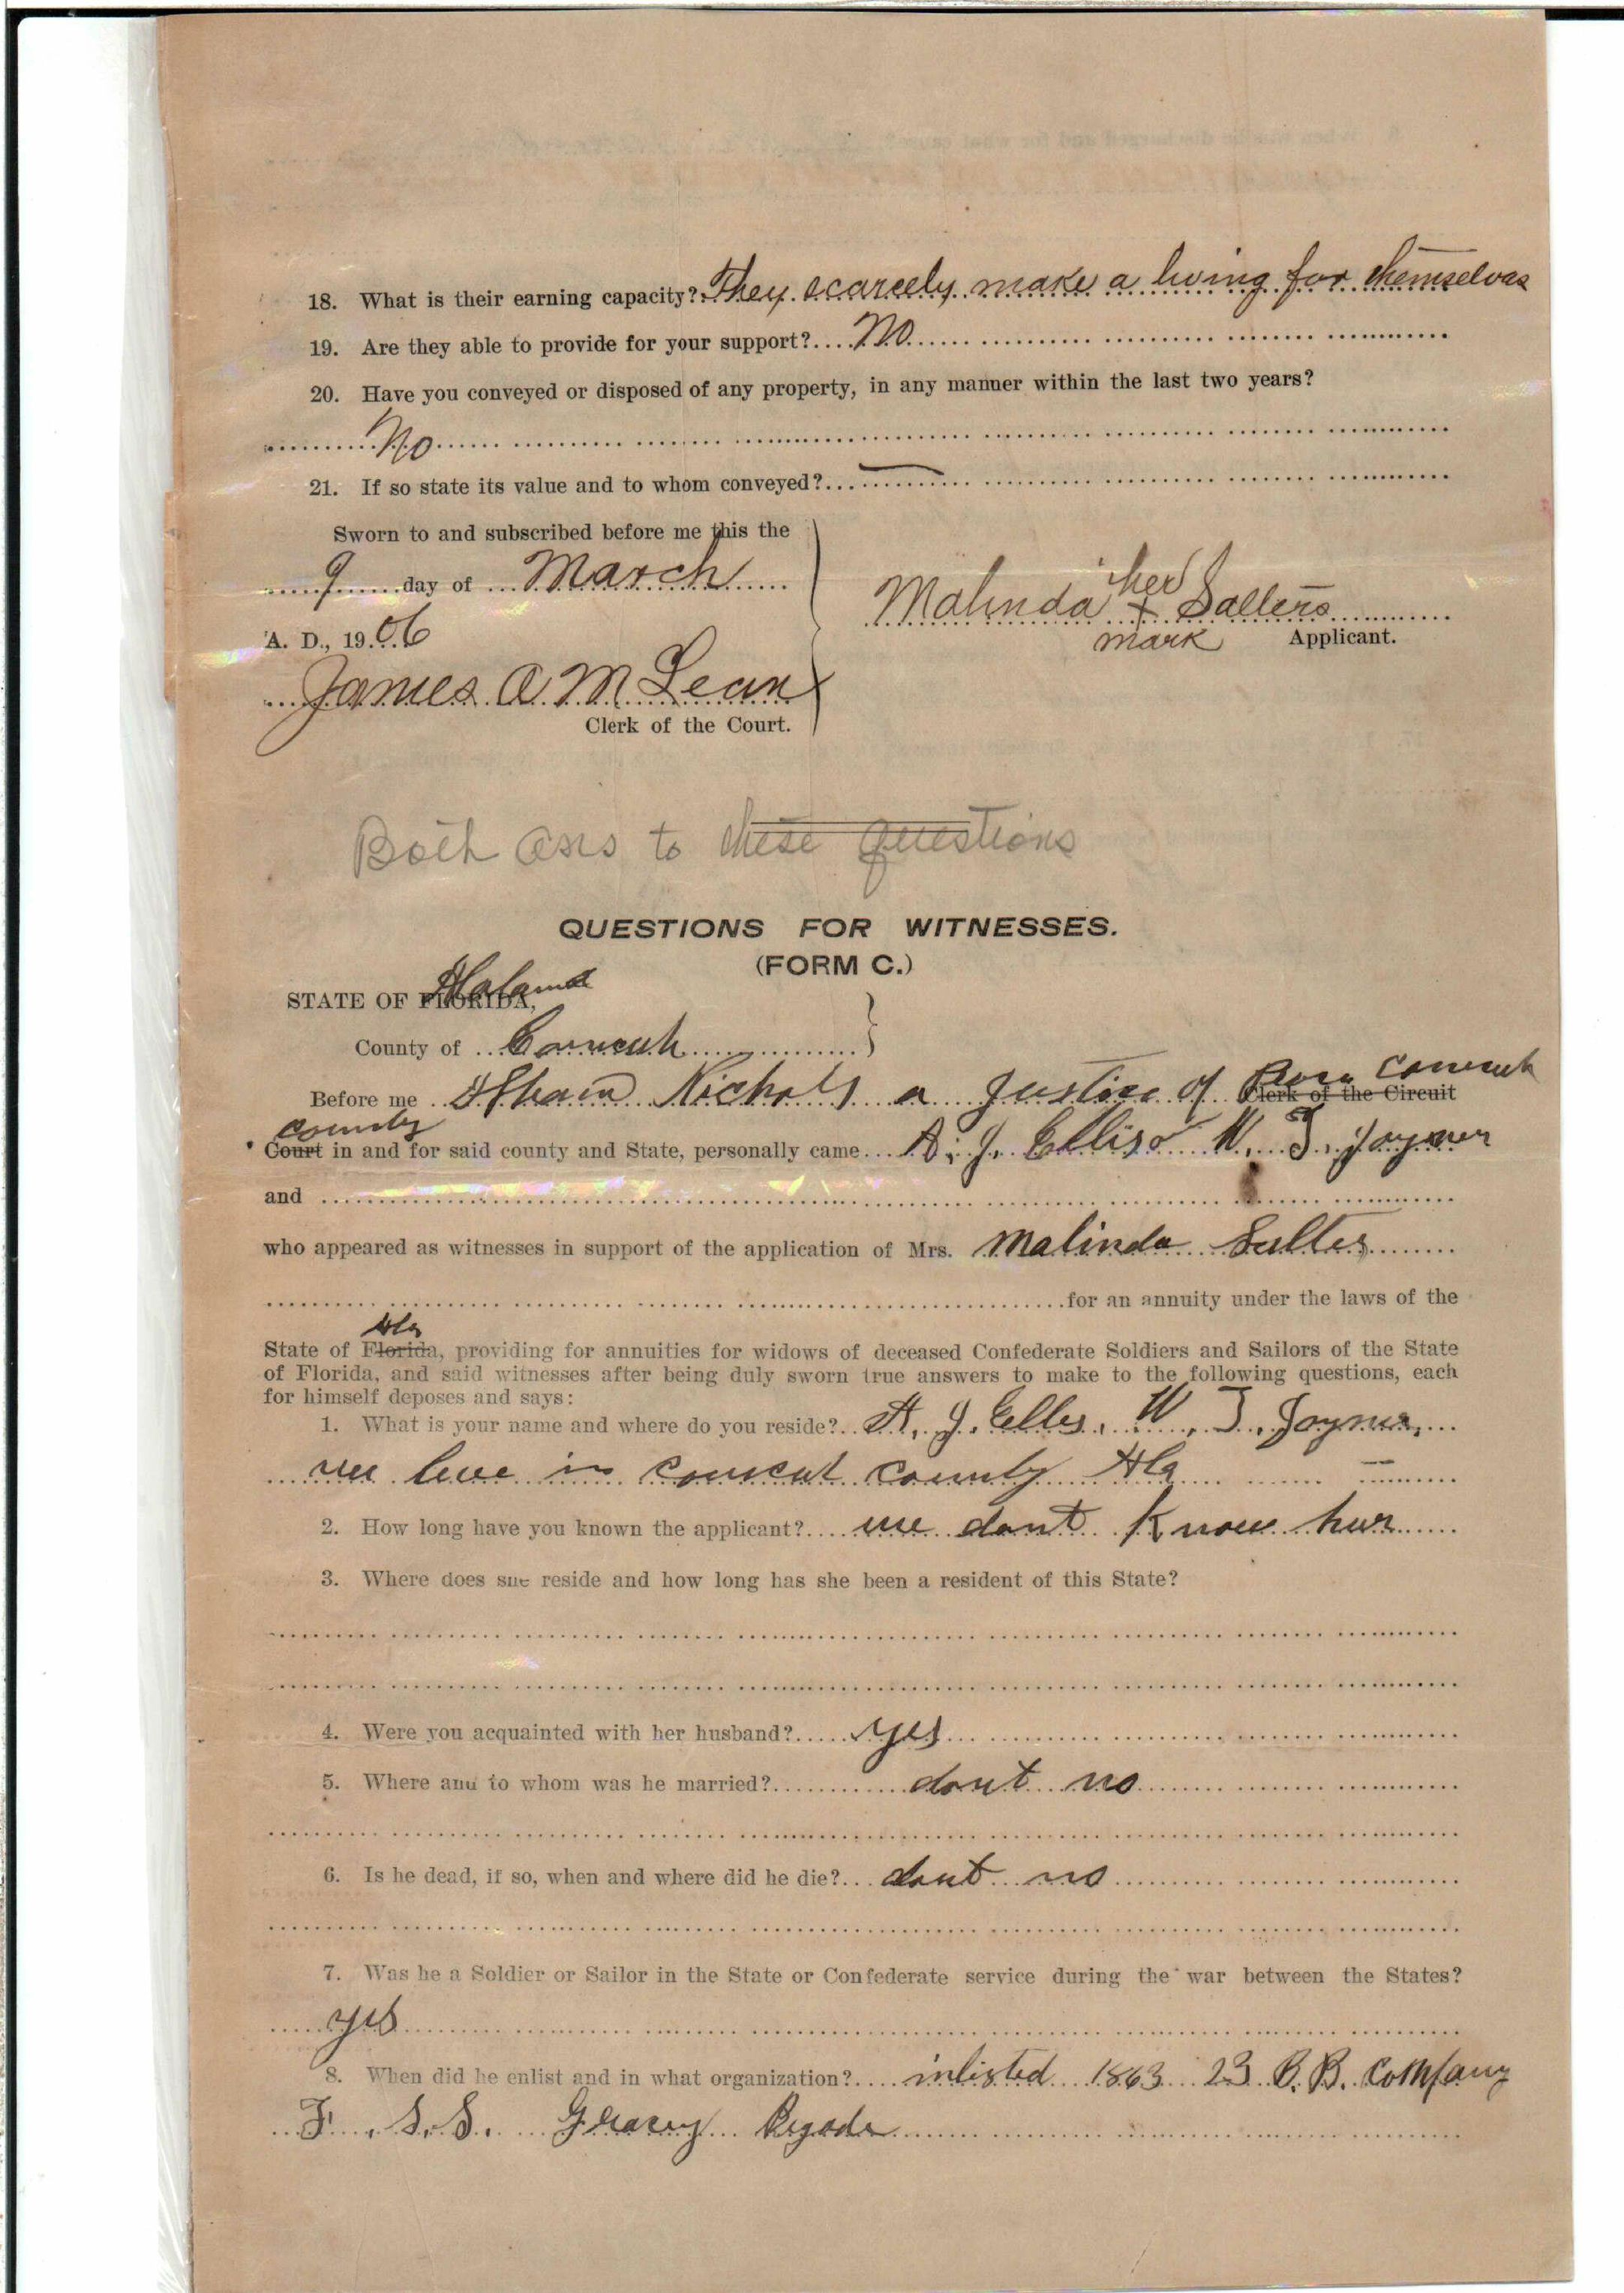 18. What is their earning capacity? They scarcely make a living for themselves
19. Are they able to provide for your support? No
20. Have you conveyed or disposed of any property, in any manner within the last two years?
No
21. If so state its value and to whom conveyed? —
Sworn to and subscribed before me this the
9 day of March
A. D., 1906
her
Malinda + Salters
mark Applicant.
James A McLean
Clerk of the Court.
Both ans to these questions
QUESTIONS FOR WITNESSES.
(FORM C.)
Alabama
STATE OF FLORIDA,
County of Conecuh
Conecuh
Before me Nichols a Justice of Clerk of the Circuit
county
Court in and for said county and State, personally came A. J. Ellis W. T. Joyner
and
who appeared as witnesses in support of the application of Mrs. Malinda Salter
for an annuity under the laws of the
Ala
State of Florida, providing for annuities for widows of deceased Confederate Soldiers and Sailors of the State
of Florida, and said witnesses after being duly sworn true answers to make to the following questions, each
for himself deposes and says:
1. What is your name and where do you reside? A. J. Ellis, W. T. Joyner,
we live in conecuh county Ala
2. How long have you known the applicant? we dont Know hur
3. Where does she reside and how long has she been a resident of this State?
4. Were you acquainted with her husband? yes
5. Where and to whom was he married? dont no
6. Is he dead, if so, when and where did he die? dont no
7. Was he a Soldier or Sailor in the State or Confederate service during the war between the States?
yes
8. When did he enlist and in what organization? inlisted 1863 23 B. B. Company
F. S. S. Gracey Bregade